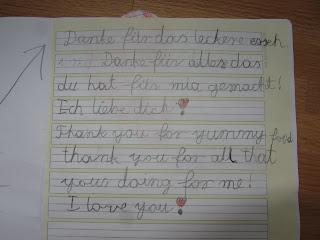 Danke für das leckere essen
und Danke für alles das
du hat für mia gemacht!
Ich liebe dich!
Thank you for yummy food
thank you for all that
yous doing for me!
I love you!